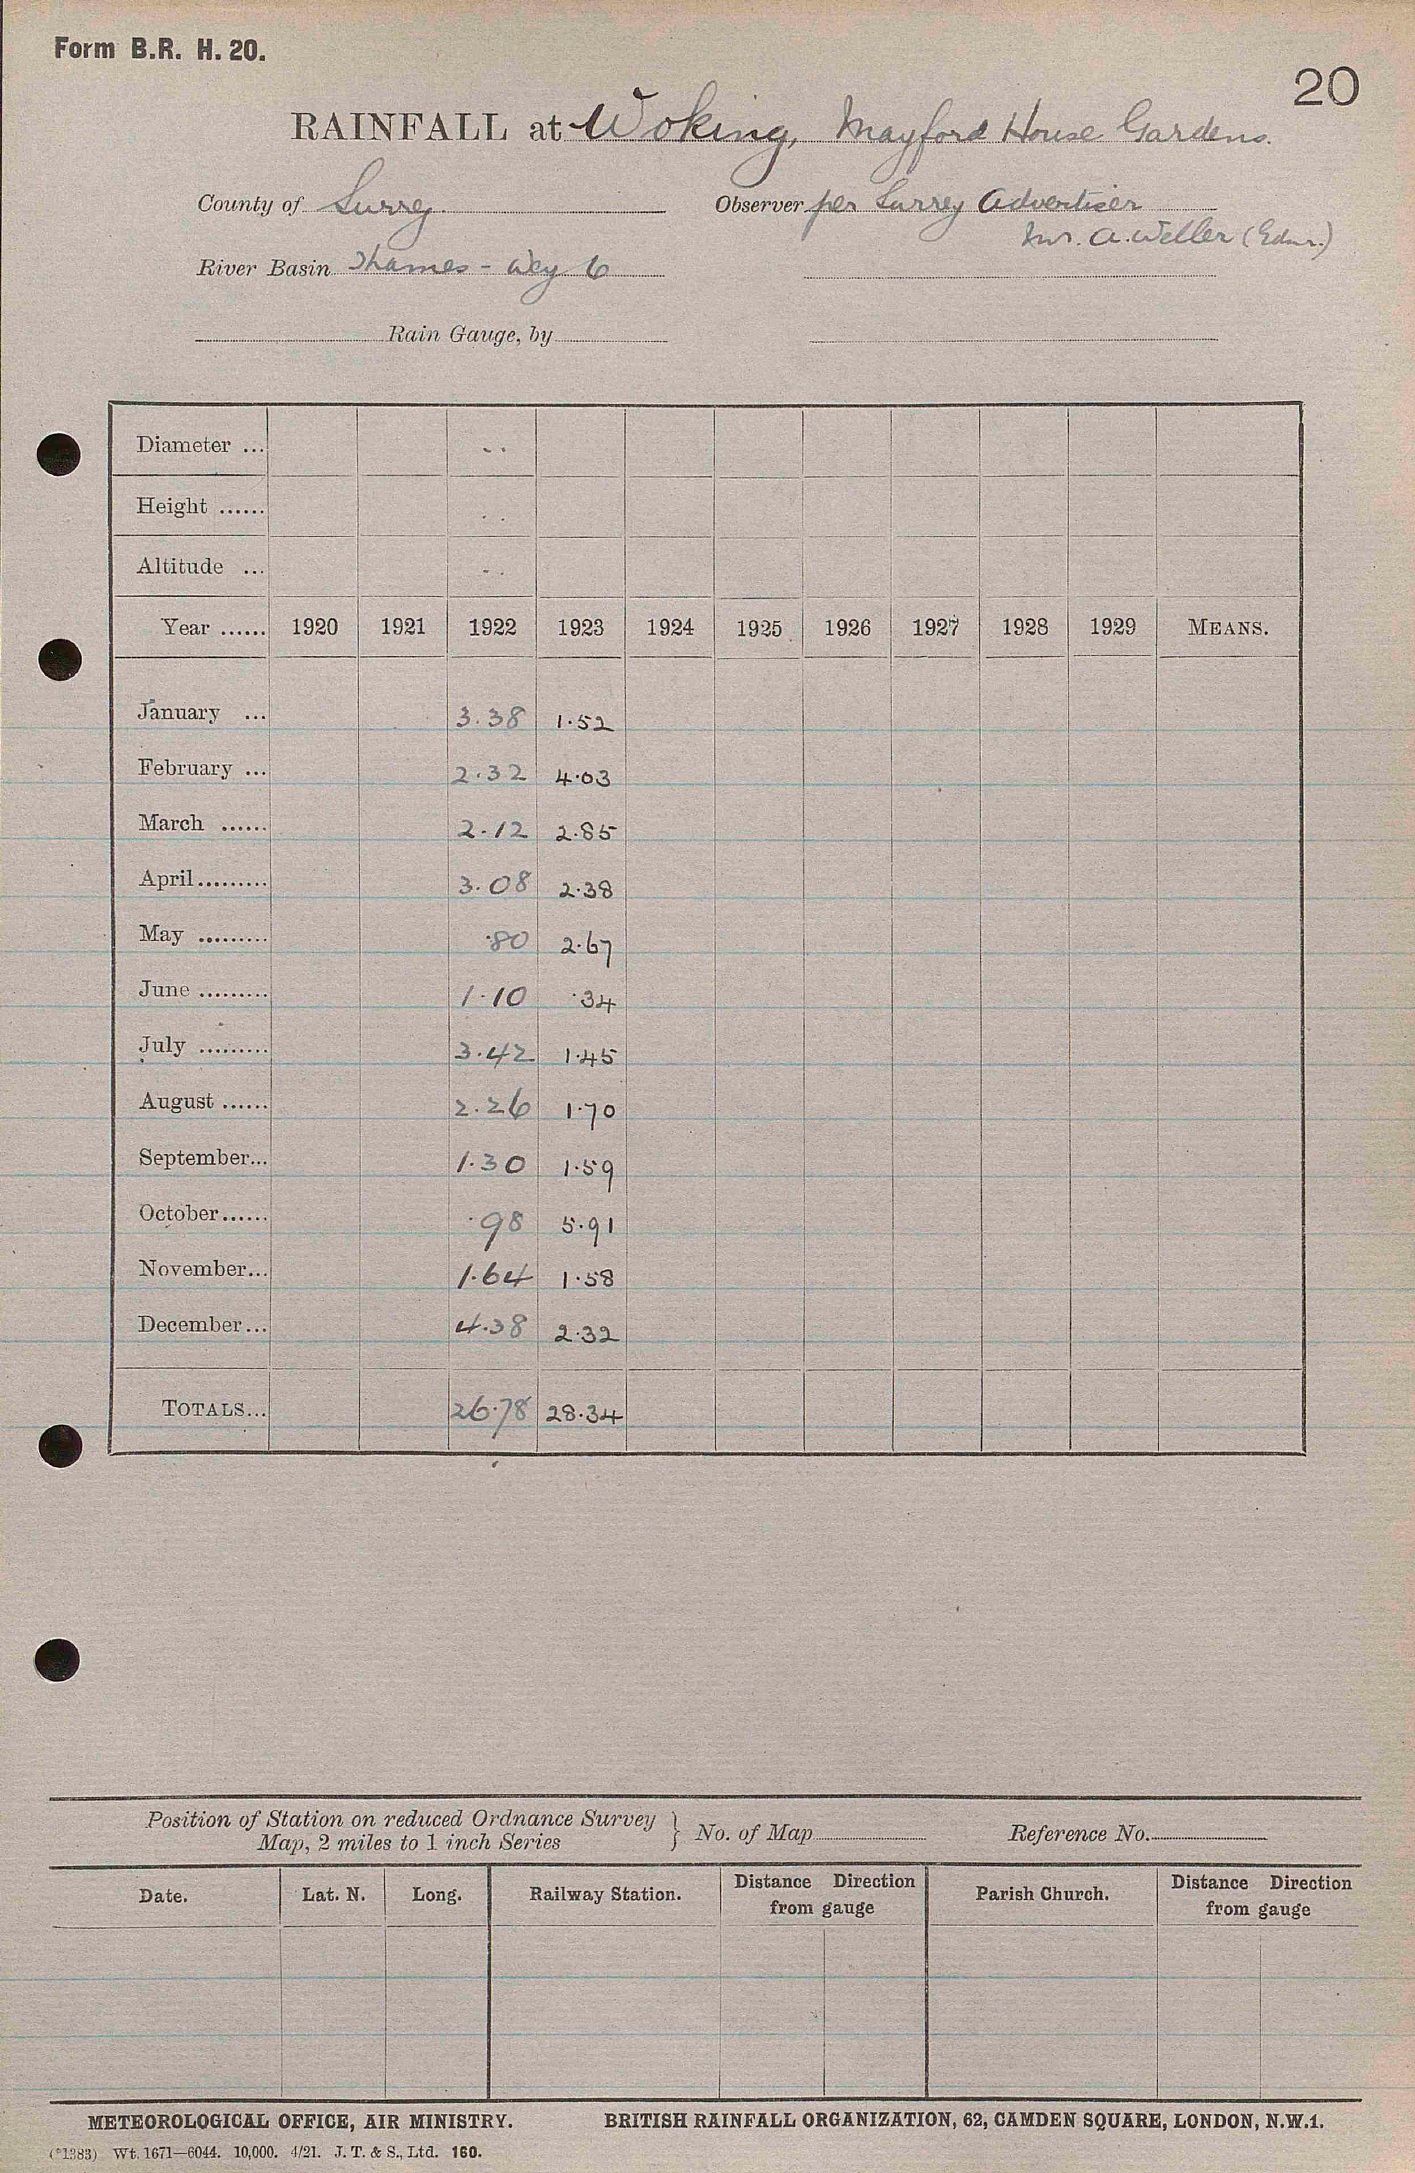 Form B.R. H. 20.
20
RAINFALL at Woking, Mayford House Gardens.
County of Surrey
Observer per Surrey Advertiser
Mr. A. Weller (Gdnr.)
River Basin Thames - Wey 6
Rain Gauge, by
Diameter ... . .
Height ...... . .
Altitude ... - .
Year ...... 1920 1921 1922 1923 1924 1925 1926 1927 1928 1929 MEANS.
January ... 3.38 1.52
February ... 2.32 4.03
March ...... 2.12 2.85
April......... 3.08 2.38
May ......... .80 2.67
June ......... 1.10 .34
July ......... 3.42 1.45
August ...... 2.26 1.70
September... 1.30 1.59
October...... .98 5.91
November... 1.64 1.58
December... 4.38 2.32
TOTALS... 26.78 28.34
Position of Station on reduced Ordnance Survey
Map, 2 miles to 1 inch Series } No. of Map Reference No.
Date. Lat. N. Long. Railway Station. Distance Direction from gauge Parish Church. Distance Direction from gauge
METEOROLOGICAL OFFICE, AIR MINISTRY. BRITISH RAINFALL ORGANIZATION, 62, CAMDEN SQUARE, LONDON, N.W.1.
(*1383) Wt. 1671—6044. 10,000. 4/21. J. T. & S., Ltd. 160.